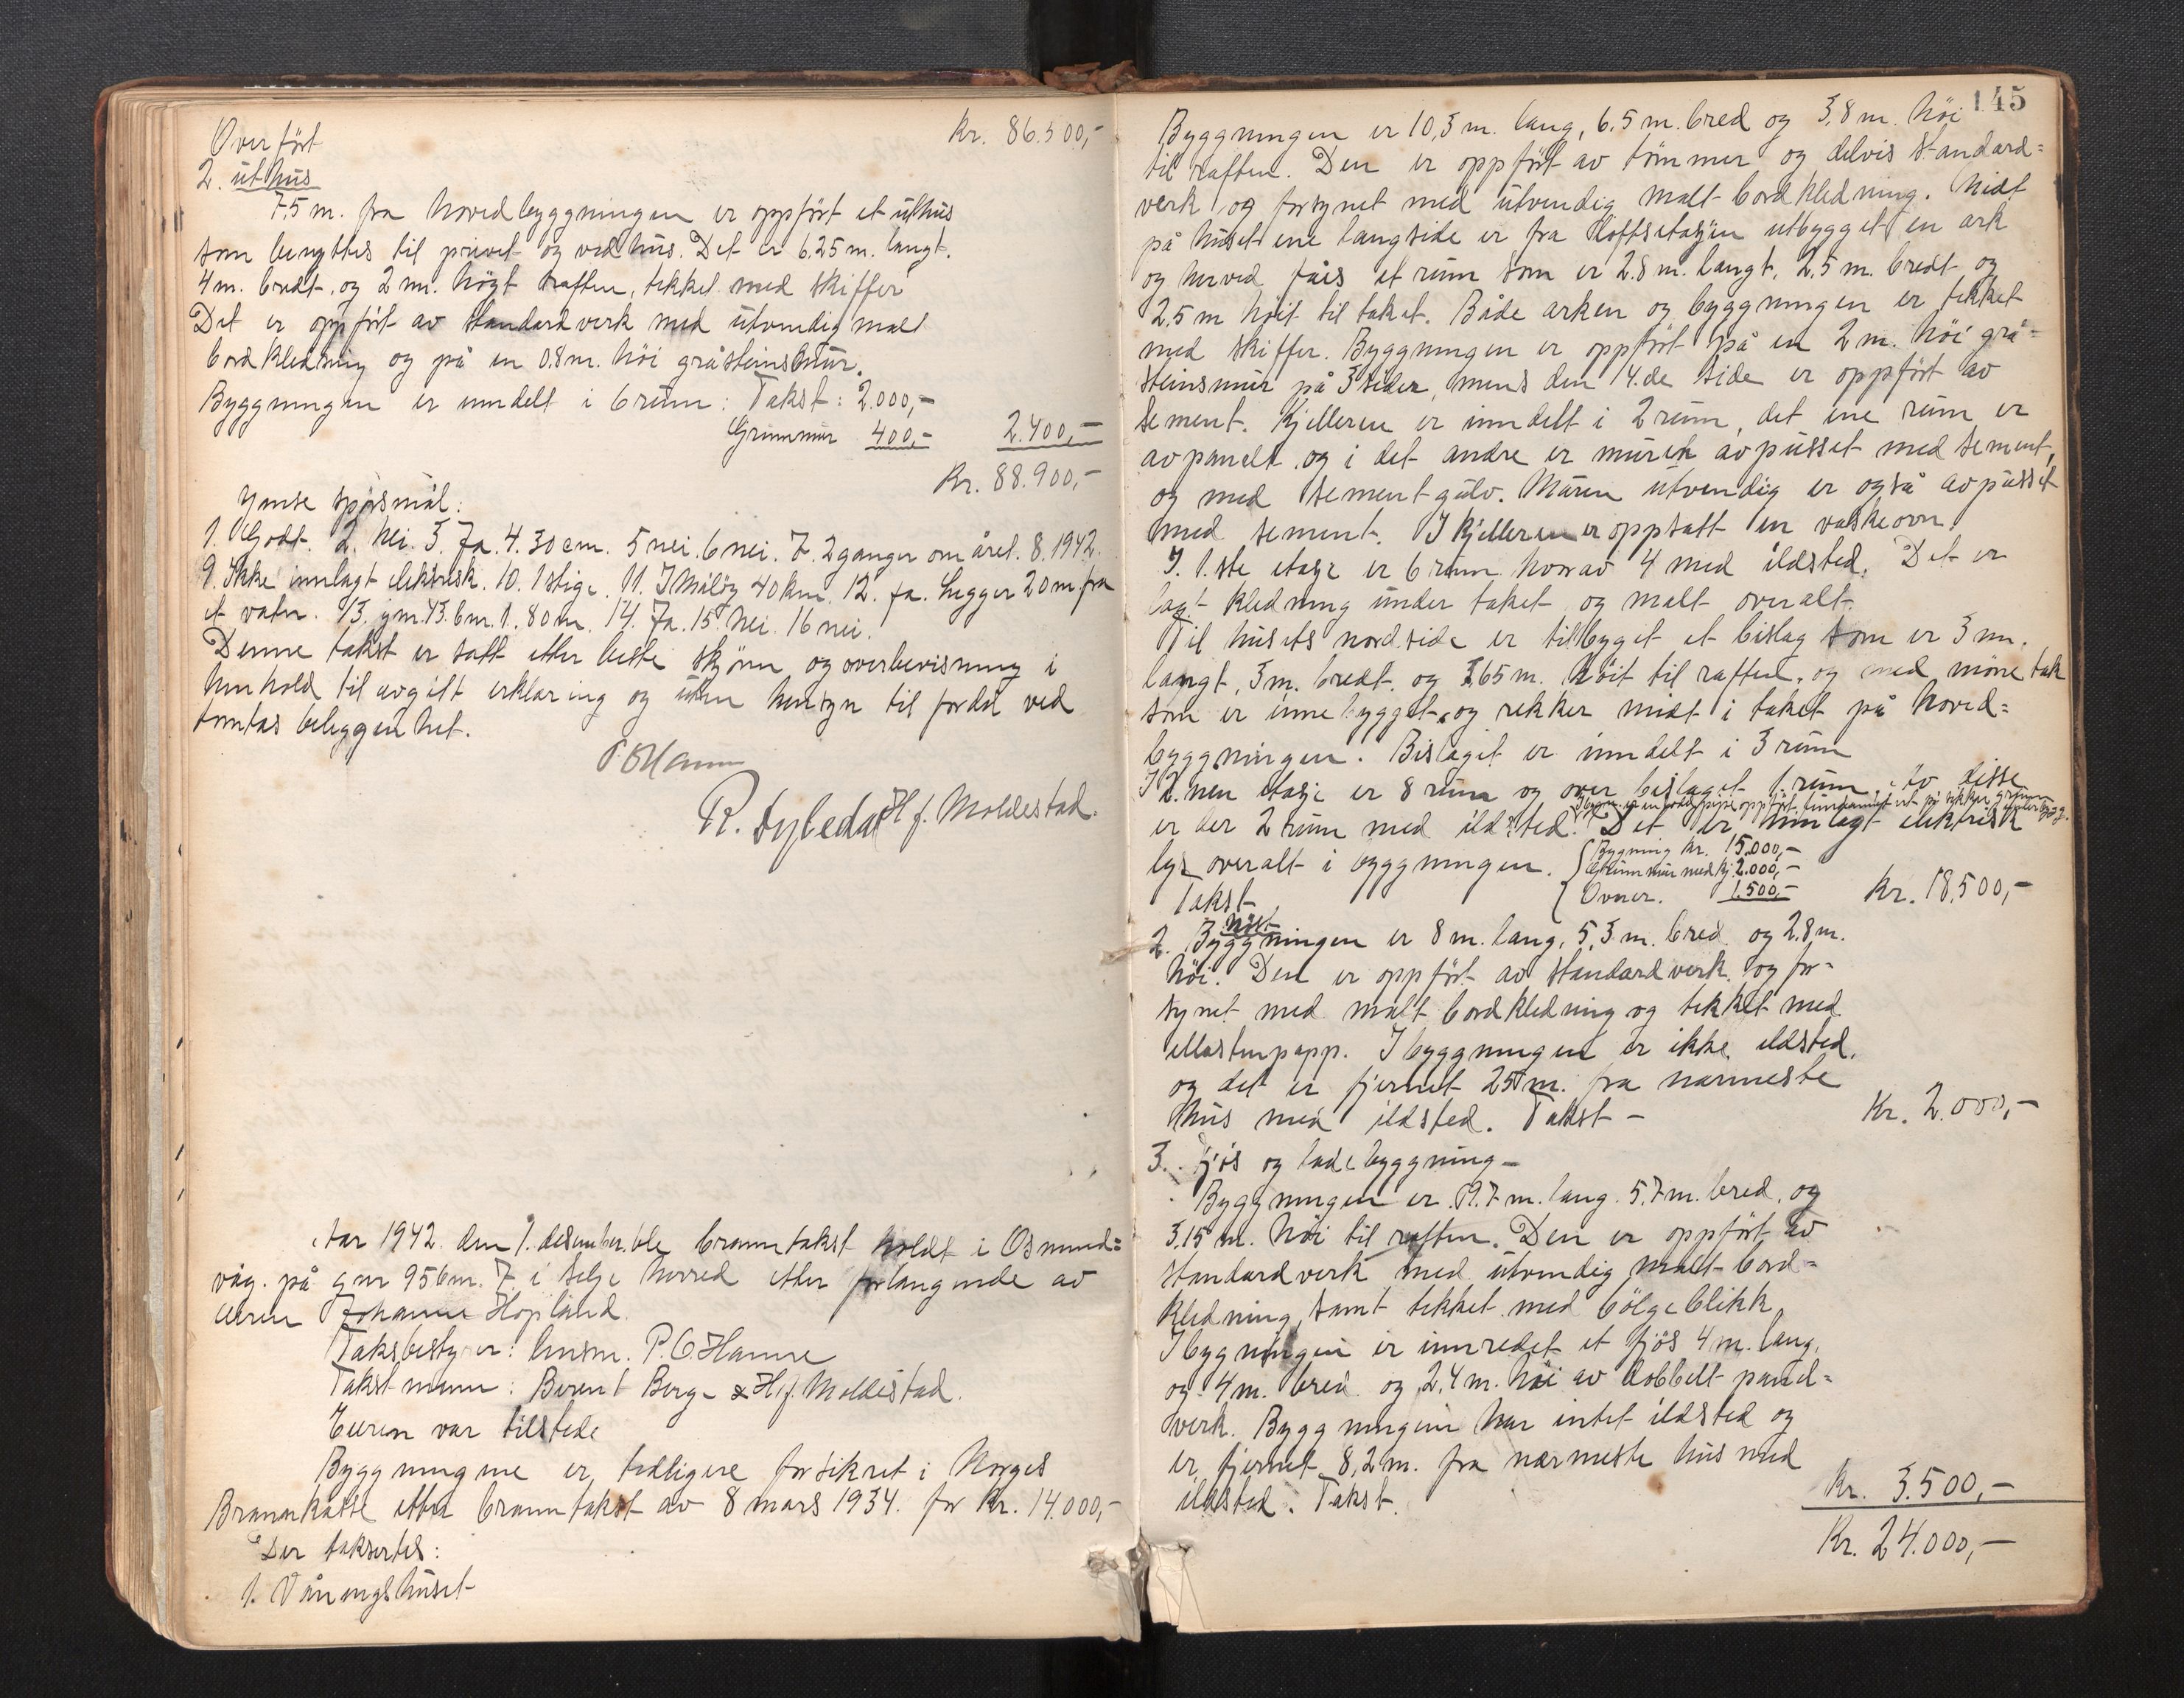 Overført Kr. 86.500,-
2. uthus
7,5 m. fra hovedbyggningen er oppført et uthus
som benyttes til privet og vedhus. Det er 6.25 m. langt.
4 m. bredt, og 2 m. högt raften, tekket med skiffer
Det er oppført av standardverk med utvendig malt
bordkledning og på en 0.8 m. höi gråsteinsmur.
Byggningen er inndelt i 6 rum: Takst: 2.000,-
Grunnmur 400,- 2.400,-
Kr. 88.900,-
Ymse spörsmål:
1. Godt. 2. Nei. 3. Ja. 4. 30 cm. 5 nei. 6 nei. 7. 2 ganger om året. 8. 1942.
9. Ikke innlagt elektrisk. 10. 1 stige. 11. I Måløy 40 km. 12. Ja. Ligger 20 m fra
et vatn. 13. 1.80 m. 14. Ja. 15. Nei. 16 nei.
Denne takst er satt etter beste skjönn og overbevisning i
henhold til avgitt erklæring og uten hensyn til fordel ved
tomtas beliggenhet.
P. O Hamre
R. Dybedal H. J. Moldestad.
Aar 1942. den 1. desember. ble branntakst holdt i Osmund=
våg. på gnr 95 bnr. 7 i Selje herred etter forlangende av
eieren Johanne Hopland.
Takstbestyrer: lensm. P. O. Hamre
Takstmenn: Berent Berge & H. J. Moldestad.
Eieren var tilstede
Byggningene er tidligere forsikret i Norges
Brannkasse etter branntakst av 8 mars 1934. for Kr. 14.000,-
Der takseres:
1. Våningshuset
145
Byggningen er 10,3 m. lang, 6.5 m. bred og 3,8 m. höi
til raften. Den er oppfört av tömmer og delvis standard=
verk og forsynet med utvendig malt bordkledning. Midt
på huset ene langside er fra loftsetasjen utbygget en ark
og herved fåes et rum som er 2.8 m. langt, 2.5 m. bredt og
2.5 m höit til taket. Både arken og byggningen er tekket
med skiffer. Byggningen er oppfört på en 2 m. höi grå=
steinsmur på 3 sider, mens den 4.de side er oppfört av
sement. Kjelleren er inndelt i 2 rum, det ene rum er
avpanelt og i det andre er muren avpusset med sement,
og med sementgulv. Muren utvendig er også avpusset
med sement. I kjelleren er oppsatt en vaskeovn.
I. 1.ste etasje er 6 rum hvorav 4 med ildsted. Det er
lagt kledning under taket og malt overalt.
Til husets nordside er tilbyget et bislag som er 3 m.
langt, 3 m. bredt. og 3,65 m. höit til raften, og med mönetak
som er innebygget og rekker midt i taket på hoved=
byggningen. Bislaget er inndelt i 3 rum
I 2.nen etasje er 8 rum og over bislaget 1 rum. Av disse
er der 2 rum med ildsted. Det er innlagt elektrisk
lys overalt i byggningen. Bygning kr. 15.000,-
Grunnmur med kj. 2.000,-
Takst Ovner. 1.500,- Kr. 18.500,-
2. Nöst
Byggningen er 8 m. lang, 5,3 m. bred og 2.8 m.
höi. Den er oppfört av standardverk og for-
synet med malt bordkledning og tekket med
ellastenpapp. I byggningen er ikke ildsted,
og det er fjernet 25 m. fra nærmeste
hus med ildsted. Takst - Kr. 2.000,-
3. Fjös og ladebyggning-
Byggningen er 9.7 m. lang. 5.7 m. bred, og
3.15 m. höi til raften. Den er oppfört av
standardverk med utvendig malt bord=
kledning, samt tekket med bölgeblikk
I bygningen er innredet et fjös 4 m. lang.
og 4 m. bred og 2,4 m. höi av dobbelt panel=
verk. Byggningen har intet ildsted og
er fjernet 8,2 m. fra nærmeste hus med
ildsted. Takst. Kr. 3.500,-
Kr. 24.000,-